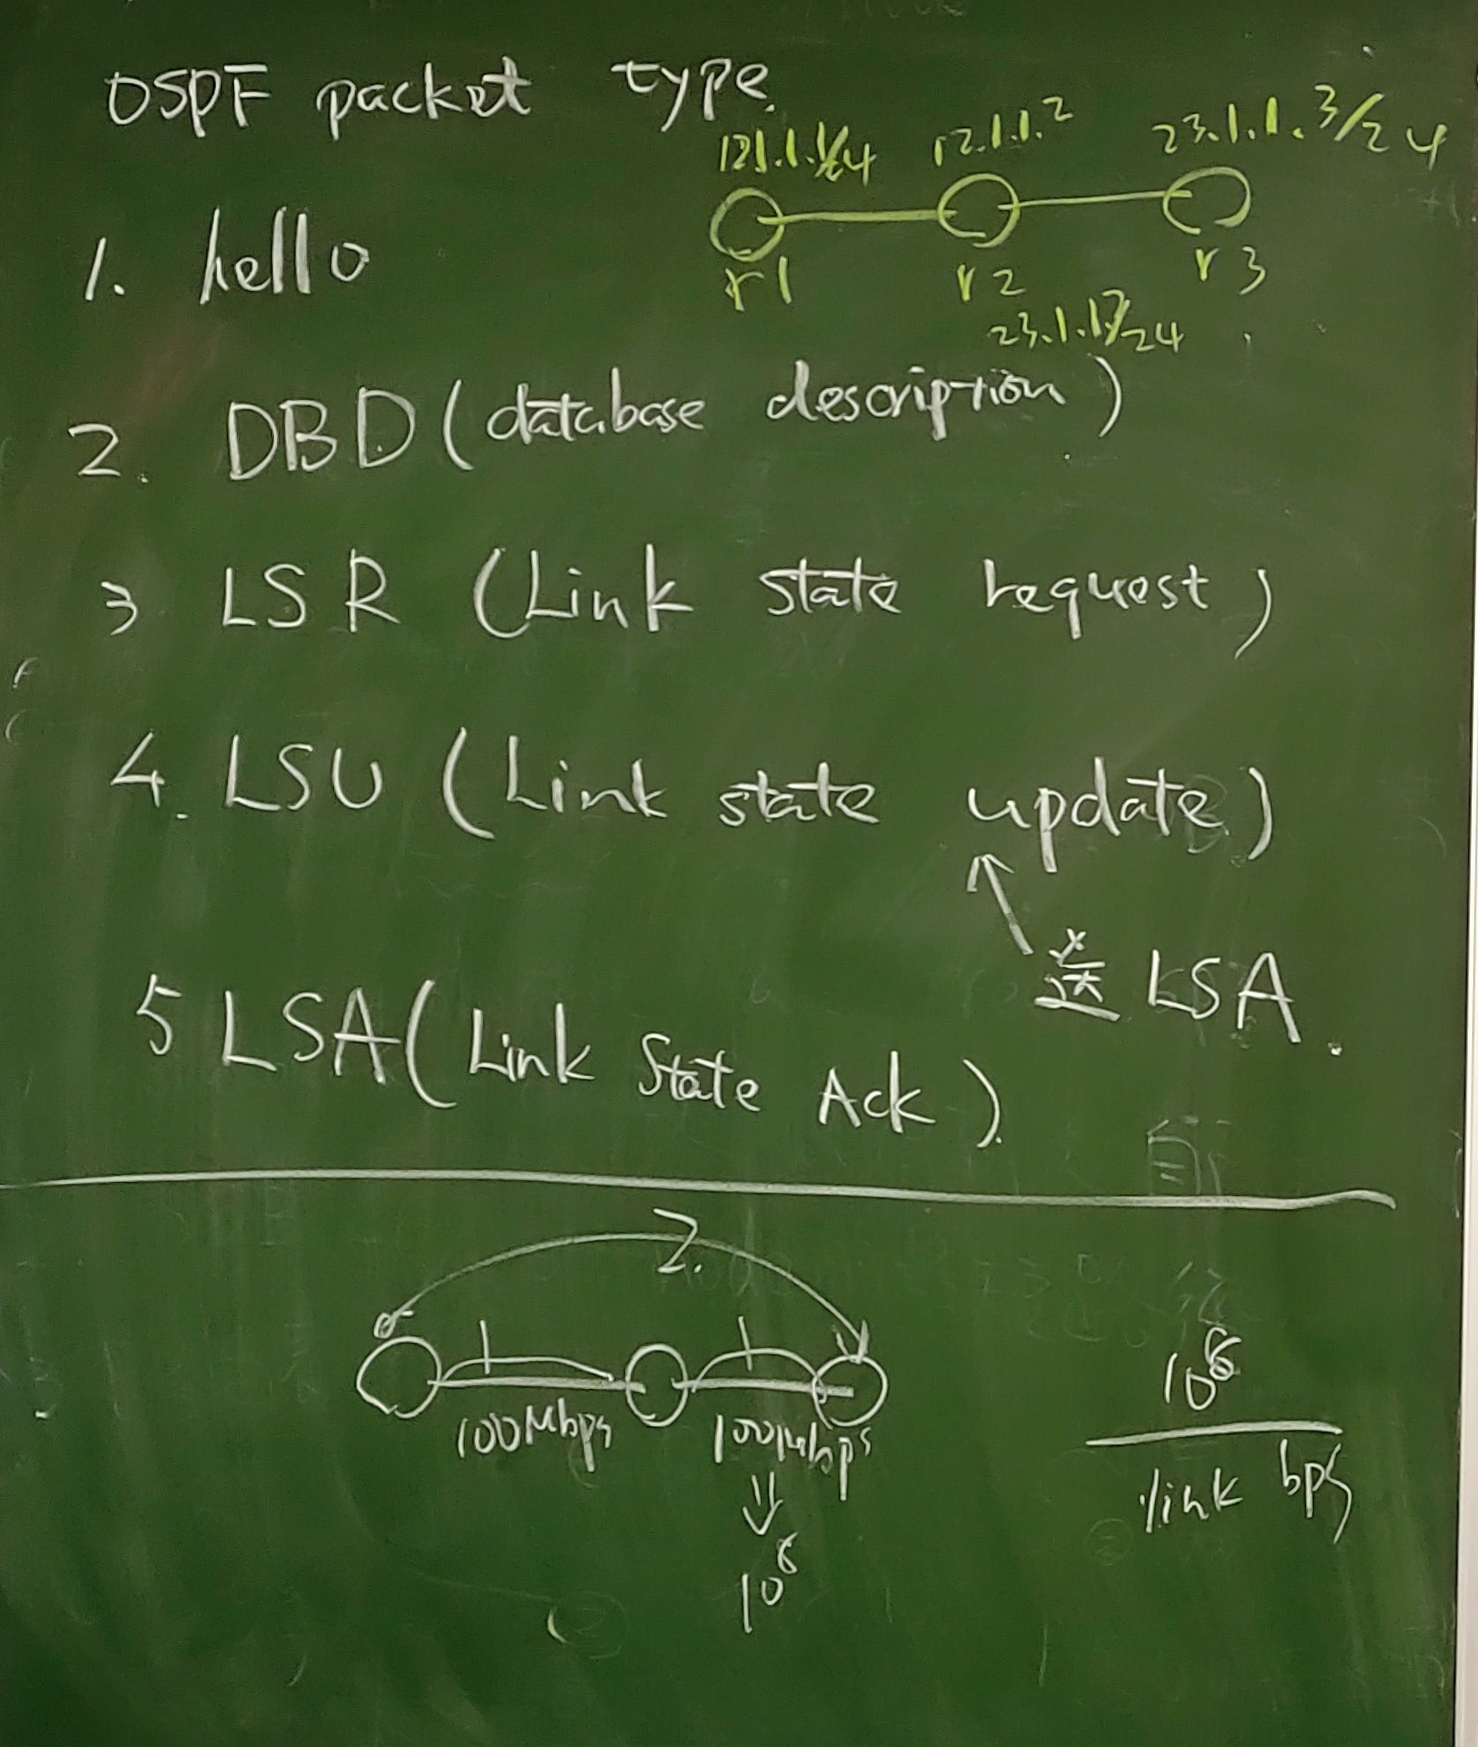 OSPF packet type
12.1.1.1/24
12.1.1.2
23.1.1.3/24
1. hello
r1
r2
r3
23.1.1.2/24
2. DBD (database description)
3 LSR (Link state request)
4. LSU (Link state update)
送 LSA.
5 LSA (Link State Ack)
2.
1
1
100Mbps
100Mbps
10⁸
10⁸
link bps